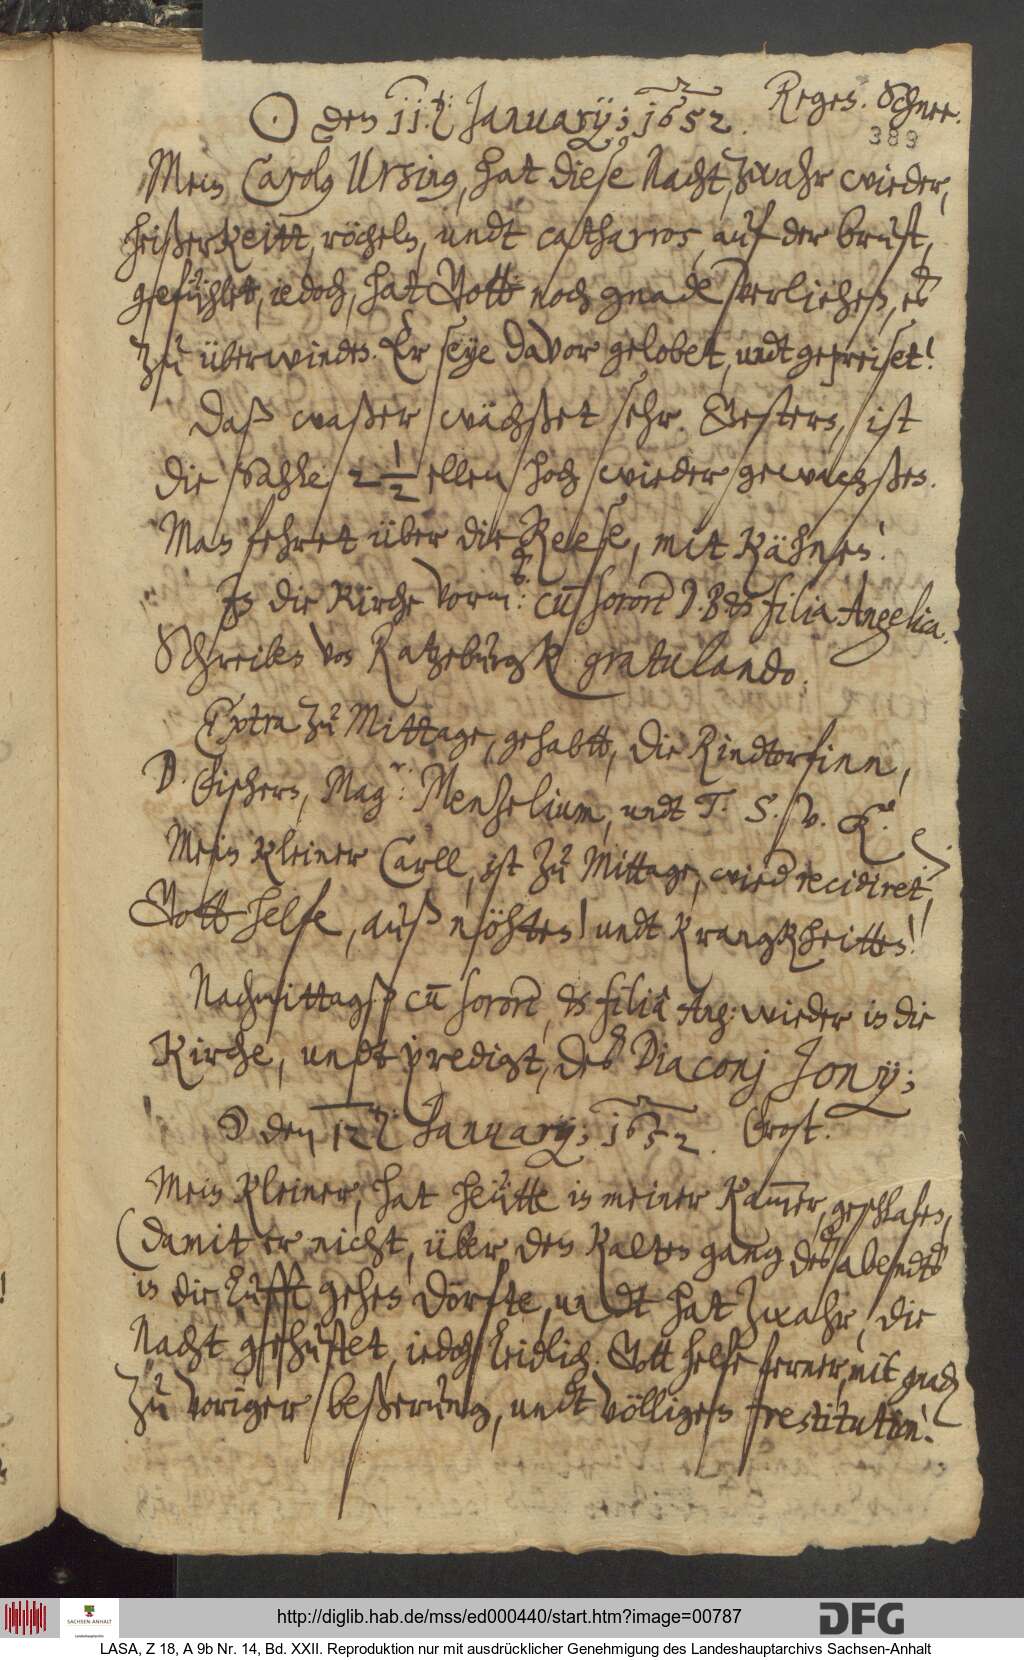 ☉ den 11.t: January; 1652. Regen. Schnee.
383
Mein Carolus Ursinus, hat diese Nacht, zwahr wieder,
heißerkeitt, röcheln, undt catharros, auf der brust,
gefühlet, iedoch, hat Gott noch gnade verliehen, es
zu überwinden. Er seye davor gelobet, undt gepreiset!
Daß waßer wächßet sehr. Gestern, ist
die Sahle 2 1/2 ellen hoch wieder gewachßen.
Man fehret über die Reese, mit Kähnen.
In die Kirche vorm: cum sorore D. B. et filia Angelica.
Schreiben von Ratzeburgk gratulando.
Extra zu Mittage, gehabtt, die Rindtorfinn,
D. Fischern, Magr: Menselium, undt T. S. v. K.
Mein kleiner Carll, ist zu Mittage, wied recidiret,
Gott helfe, auß nöhten! undt krangkheitten!
Nachmittagß cum sorore, et filia Ang: wieder in die
Kirche, undt predigt, des Diaconj Jonij;
☽ den 12.t: January; 1652. Frost.
Mein kleiner, hat heütte in meiner Kammer, geschlafen,
(damit er nicht, über den kalten gang des abendts
in die Lufft gehen dörfte, undt hat zwahr, die
Nacht gehustet, iedoch leidlich. Gott helfe ferner, mit gnad
zu voriger beßerung, undt völligen restitution!
http://diglib.hab.de/mss/ed000440/start.htm?image=00787
DFG
SACHSEN-ANHALT
Landeshauptarchiv
LASA, Z 18, A 9b Nr. 14, Bd. XXII. Reproduktion nur mit ausdrücklicher Genehmigung des Landeshauptarchivs Sachsen-Anhalt